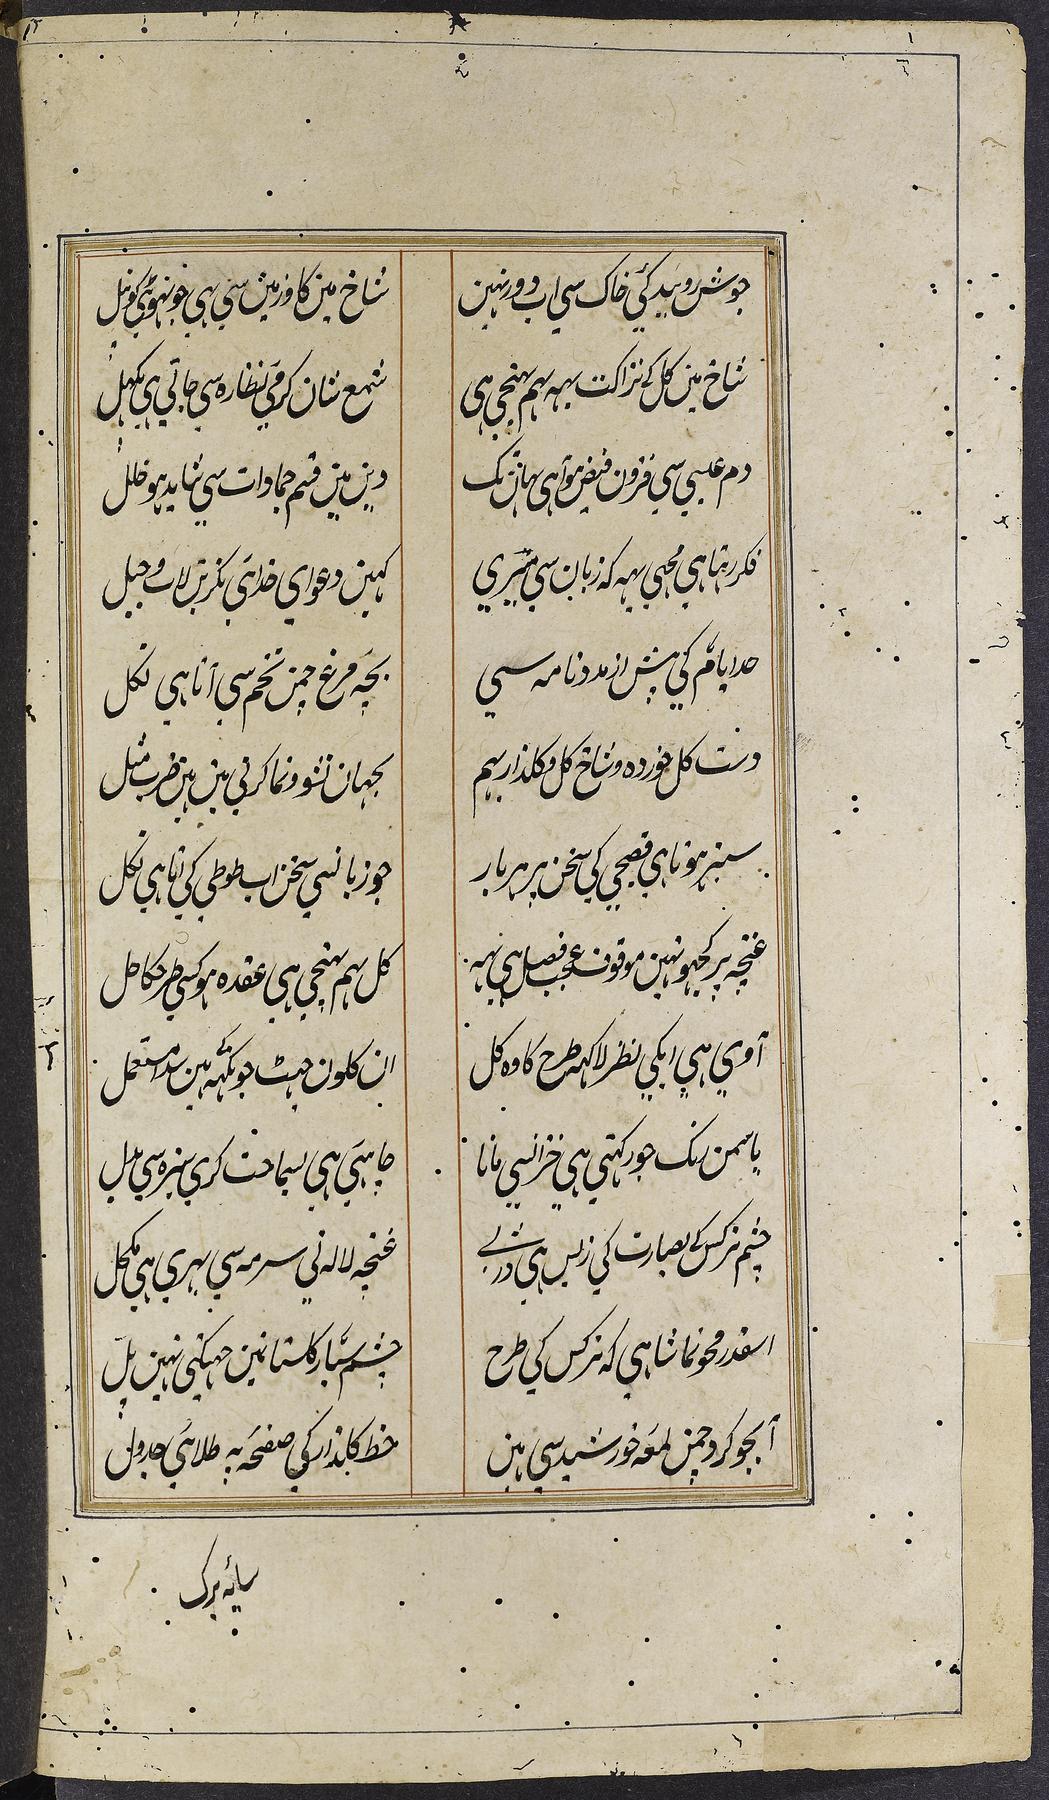 جوش روئیدگئ خاک سی اب دور نہین شاخ مین کاو زمین سی بہی جو پہوٹی کونپل
شاخ مین گل کے نزاکت یہہ بہم پہنچی ہی شمع سان گرمی نظارہ سی جاتی ہی پگہل
دم عیسی سی فزون فیض ہوا ہی یہان تک دین مین قسم جمادات سی شاید ہو خلل
فکر رہتا ہی مجہی یہہ کہ زبان سی کہین دعوای خدائی نکرین لات و ہبل
کی پیش از مدد نامیہ سی بچہ مرغ چمن تخم سی آتا ہی نکل
دست گل خوردہ و شاخ گل و گلذار بہم بجہان نشو و نما کرنی مین ہین ضرب مثل
سبز ہوتا ہی فصیحی کی سخن پر ہر بار جو زبانسی سخن اب طوطی کی اتا ہی نکل
غنچہ پر کچہہ نہین موقوف عجب فصل ہی یہہ گل بہم پہنچی ہی عقدہ ہو کسی طرحکا حل
آوی ہی ابکی نظر لاکہہ طرح کا وہ گل ان گلون جو کہہ ہین سدا مستعمل
یاسمن رنگ جو رکہتی ہی خزانسی مانا چاہتی ہی بسماجت کری سبزہ سی بدل
چشم نرگس کے بصارت کی زبس ہی درپے غنچہ لالہ نی سرمہ سی بہری ہی مکحل
اسقدر محو تماشا ہی کہ نرگس کی طرح چشم سیار گلستانمین جہپکتی نہین پل
آبجو گرد چمن لمعہ خورشید سی ہین خط گلذار کی صفحہ پہ طلائی جدول
سایۂ برگ